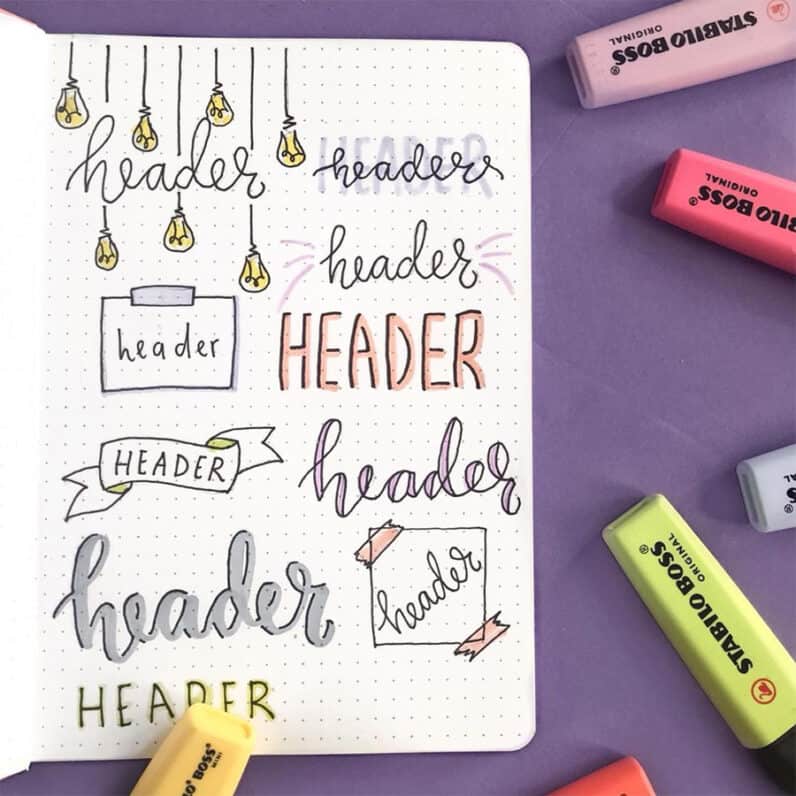 header
HEADER
header
header
header
HEADER
HEADER
header
header
header
HEADER
STABILO BOSS
ORIGINAL
BILO BOSS
ORIGINAL
STABILO BOSS
ORIGINAL
ILO BOSS
MINI